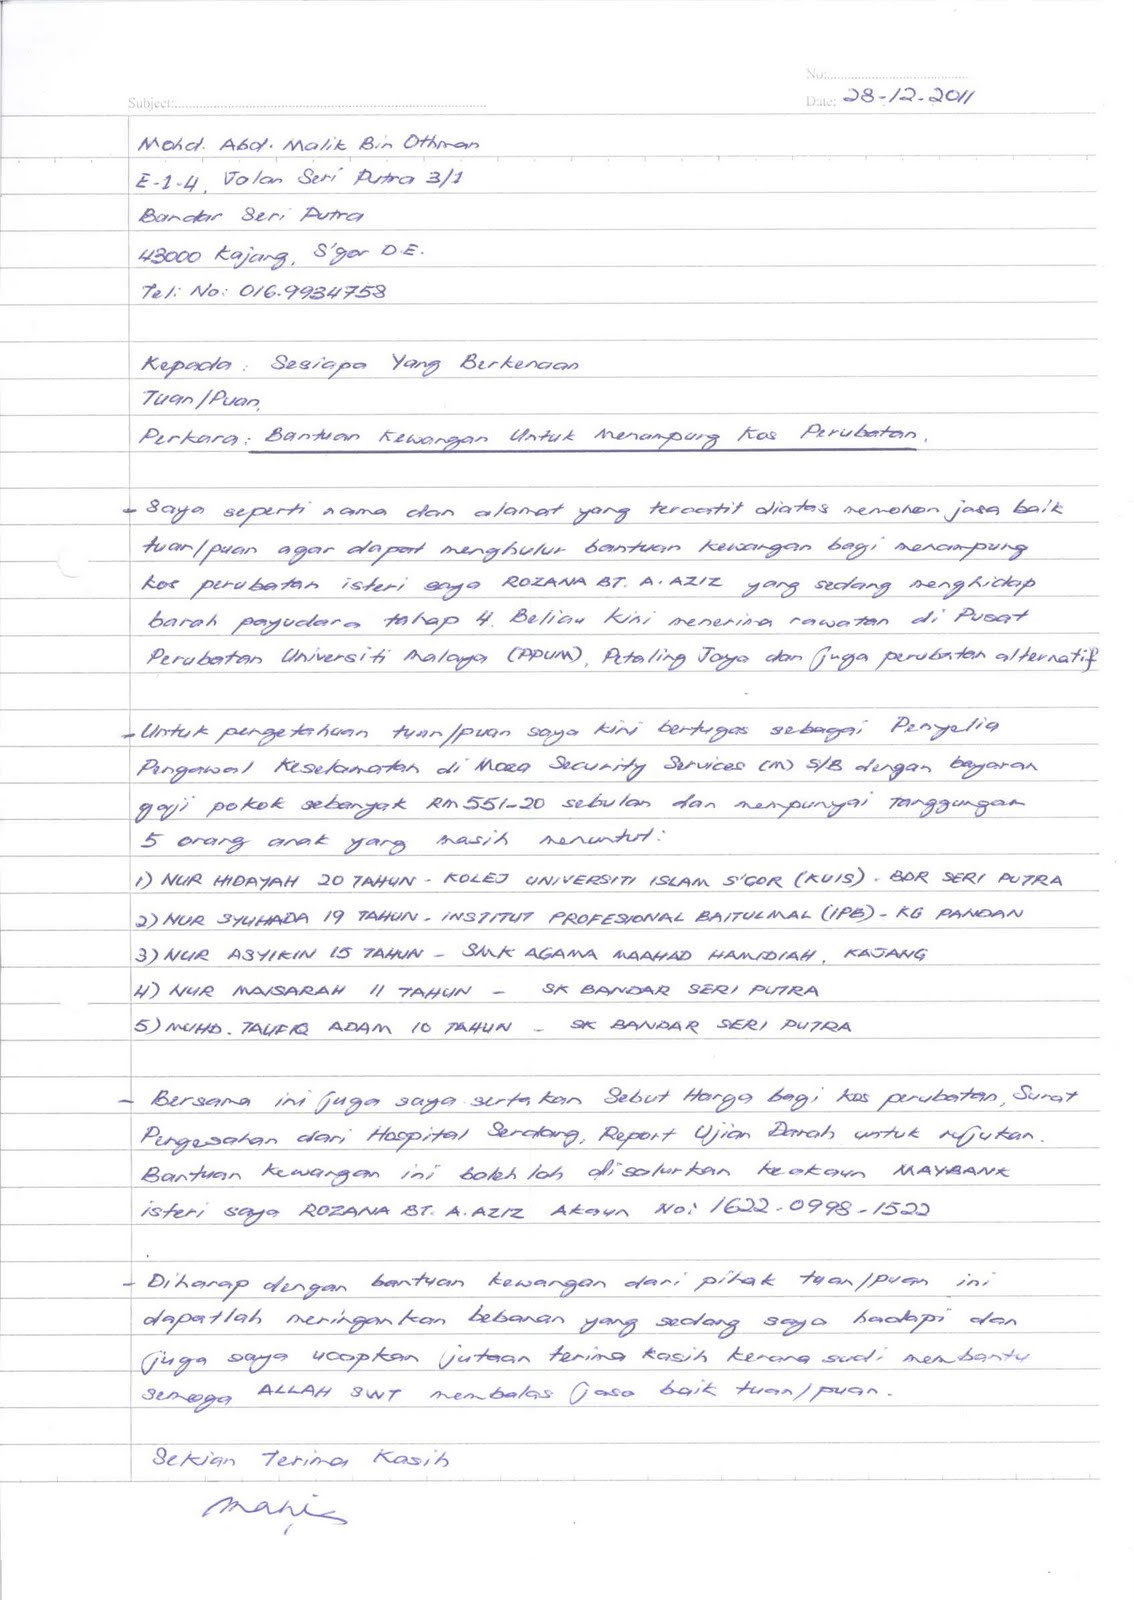 No:
Subject:
Date: 28-12-2011
Mohd. Abd. Malik Bin Othman
E-1-4, Jalan Seri Putra 3/1
Bandar Seri Putra
43000 Kajang, S'gor D.E.
Tel: No: 016.9934758
Kepada : Sesiapa Yang Berkenaan
Tuan/Puan,
Perkara : Bantuan Kewangan Untuk Menampung Kos Perubatan.
- Saya seperti nama dan alamat yang tercatit diatas memohon jasa baik
tuan/puan agar dapat menghulur bantuan kewangan bagi menampung
kos perubatan isteri saya ROZANA BT. A. AZIZ yang sedang menghidap
barah payudara tahap 4. Beliau kini menerima rawatan di Pusat
Perubatan Universiti Malaya (PPUM), Petaling Jaya dan juga perubatan alternatif
- Untuk pengetahuan tuan/puan saya kini bertugas sebagai Penyelia
Pengawal Keselamatan di Moza Security Services (M) S/B dengan bayaran
gaji pokok sebanyak RM 551-20 sebulan dan mempunyai tanggungan
5 orang anak yang masih menuntut:
1) NUR HIDAYAH 20 TAHUN - KOLEJ UNIVERSITI ISLAM S'GOR (KUIS) - BDR SERI PUTRA
2) NUR SYUHADA 19 TAHUN - INSTITUT PROFESIONAL BAITULMAL (IPB) - KG PANDAN
3) NUR ASYIKIN 15 TAHUN - SMK AGAMA MAAHAD HAMIDIAH, KAJANG
4) NUR MAISARAH 11 TAHUN - SK BANDAR SERI PUTRA
5) MUHD. TAUFIQ ADAM 10 TAHUN - SK BANDAR SERI PUTRA
- Bersama ini juga saya sertakan Sebut Harga bagi kos perubatan, Surat
Pengesahan dari Hospital Serdang, Report Ujian Darah untuk rujukan.
Bantuan kewangan ini boleh lah disalurkan keakaun MAYBANK
isteri saya ROZANA BT. A. AZIZ Akaun No: 1622-0998-1522
- Diharap dengan bantuan kewangan dari pihak tuan/puan ini
dapatlah meringankan bebanan yang sedang saya hadapi dan
juga saya ucapkan jutaan terima kasih kerana sudi membantu
semoga ALLAH SWT membalas jasa baik tuan/puan.
Sekian Terima Kasih